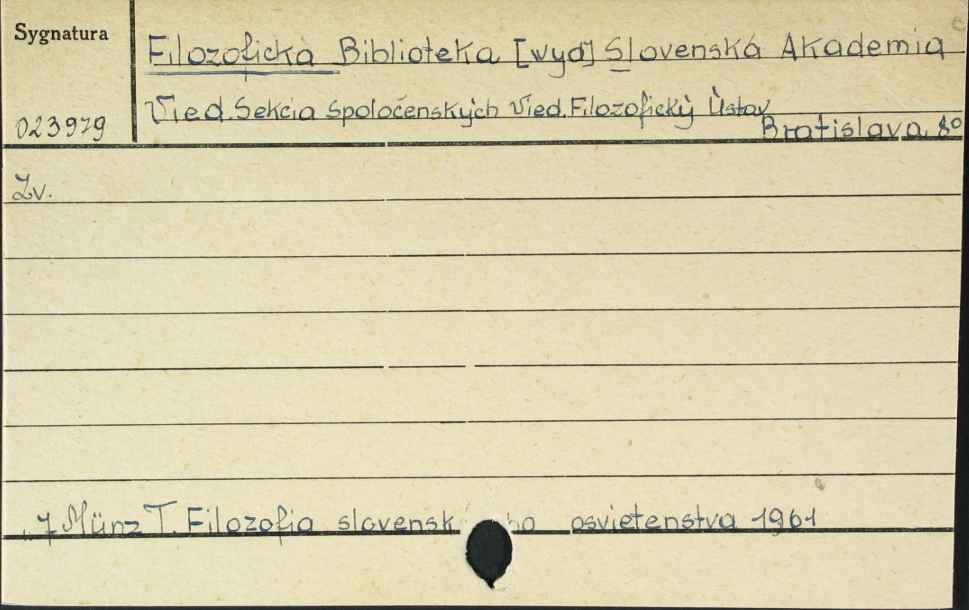 Sygnatura
Filozofická Biblioteka [wyd] Slovenská Akademia
Vied. Sekcia Spoločenských Vied. Filozofický Ústav
023979
Bratislava 8°
Zv.
„ 7 Münz T. Filozofia slovensk ho osvietenstva 1961